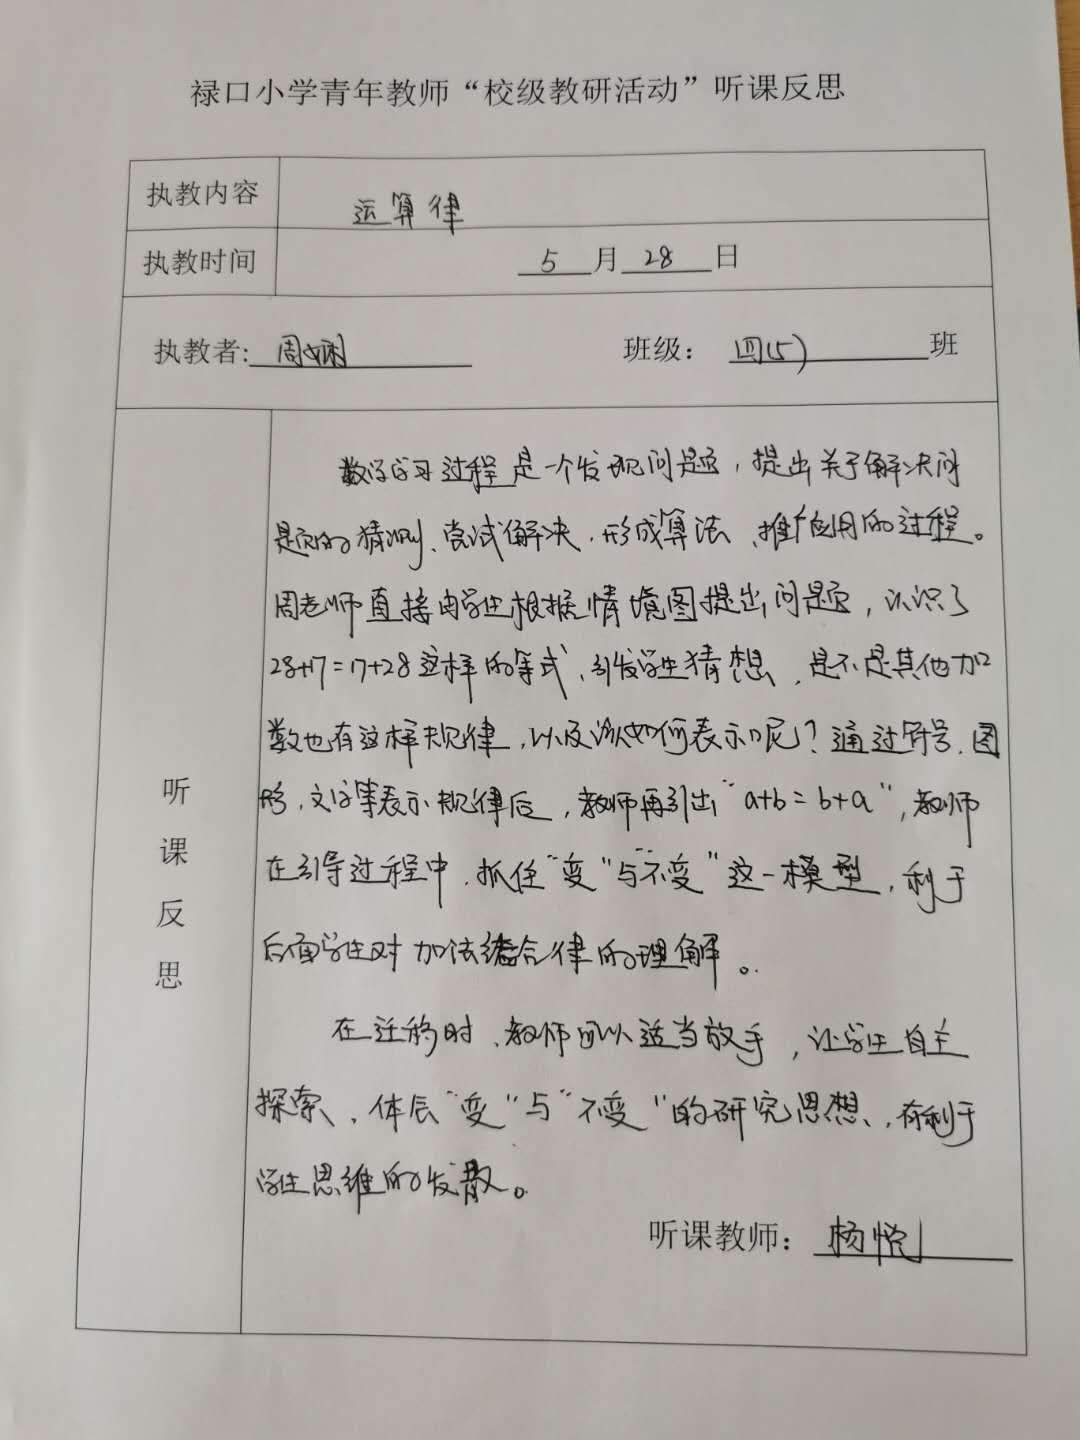 禄口小学青年教师“校级教研活动”听课反思
执教内容 运算律
执教时间 5月28日
执教者:周娴 班级：四(5)班
听课反思
数学学习过程是一个发现问题，提出关于解决问
题的猜测、尝试解决、形成算法、推广应用的过程。
周老师直接由学生根据情境图提出问题，认识了
28+17=17+28这样的等式，引发学生猜想，是不是其他加
数也有这样规律，以及该如何表示呢？通过符号、图
形、文字等表示规律后，教师再引出“a+b=b+a”，教师
在引导过程中，抓住“变”与“不变”这一模型，利于
后面学生对加法结合律的理解。
在迁移时，教师可以适当放手，让学生自主
探索，体会“变”与“不变”的研究思想，有利于
学生思维的发散。
听课教师：杨悦